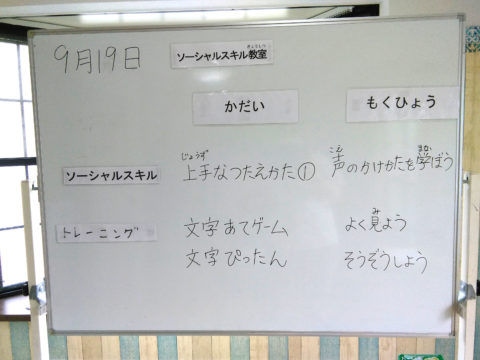 9月19日
ソーシャルスキル教室
きょうしつ
かだい
もくひょう
ソーシャルスキル
上手なつたえかた①
じょうず
声のかけかたを学ぼう
こえ
まな
トレーニング
文字あてゲーム
よく見よう
み
文字ぴったん
そうぞうしよう